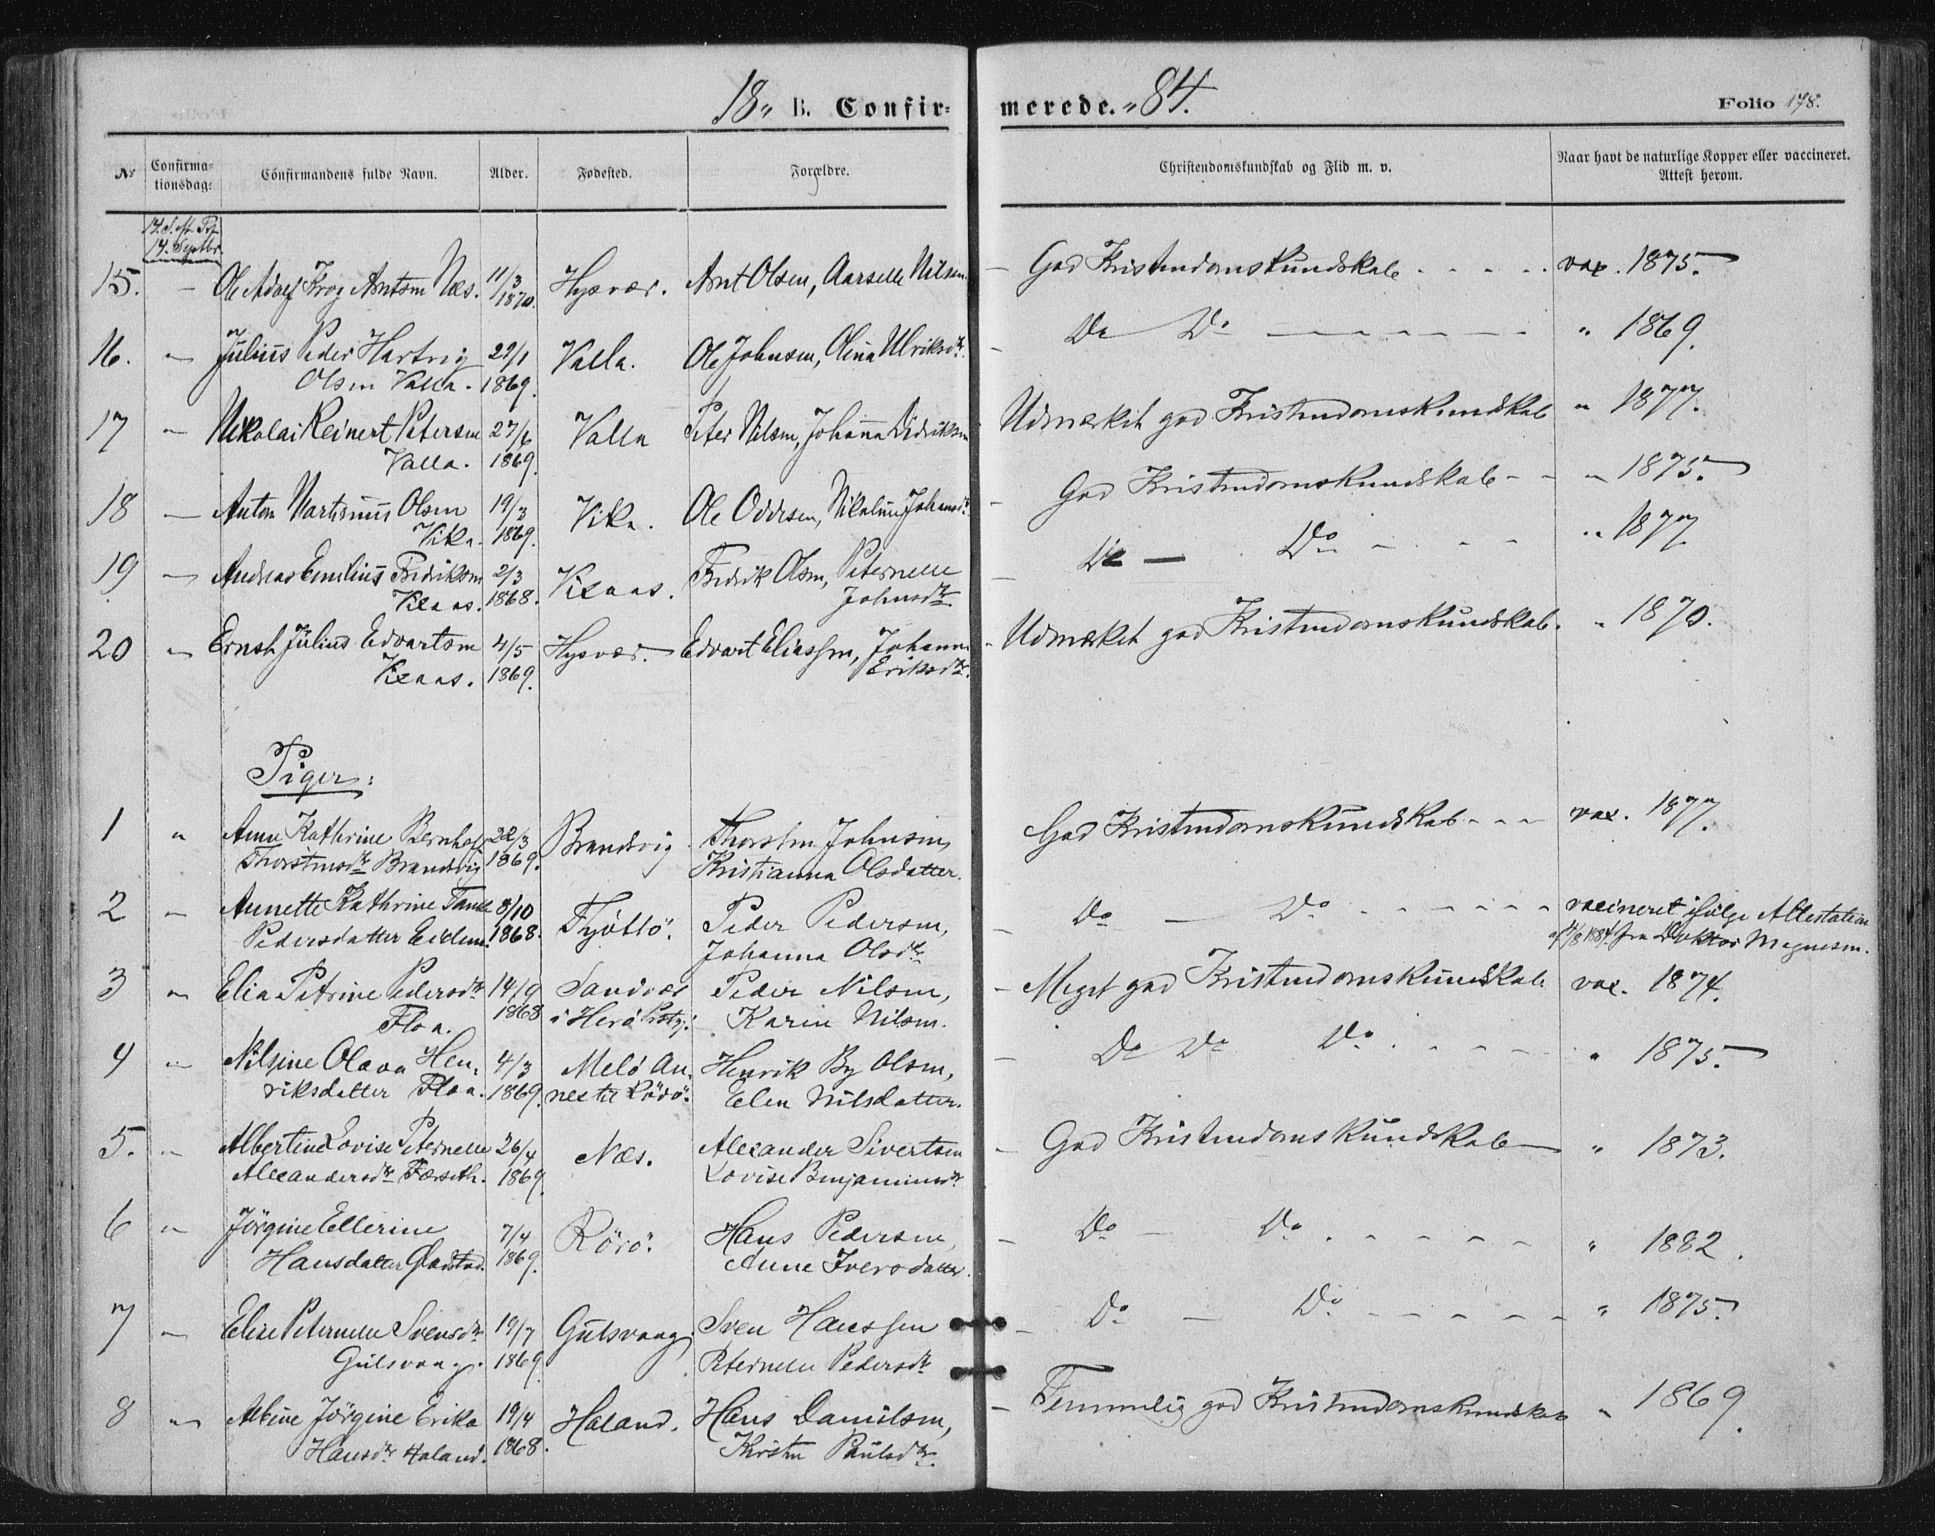 18 „ B. Confir- merede. „ 84.
Folio 178.
No
Confirma-
tionsdag:
Confirmandens fulde Navn.
Alder.
Fødested.
Forældre.
Christendomskundskab og Flid m. v.
Naar havt de naturlige Kopper eller vaccineret.
Attest herom.
14. S. eft. Tr.
14. Septbr.
15. — Ole Adolf Krog Arntsen Næs. 11/3 1870. Hysvær. Arnt Olsen, Aarselle Nilsen — God Kristendomskundskab . . . . . vax. 1875.
16. „ Julius Peder Hartvig
Olsen Valla. 29/1 1869. Valla. Ole Johnsen, Olina Ulriksdtr. — Do Do — — — „ 1869.
17 — Nikolai Reinert Petersen
Valla. 27/6 1869. Valla Peter Nilsen, Johanna Didriksen Udmærket god Kristendomskundskab „ 1877.
18 — Anton Martinius Olsen
Vika. 19/3 1869. Vika. Ole Oddesen, Nikoline Johansdr. — God Kristendomskundskab - - „ 1875.
19 — Andreas Emilius Fredriksen
Vilaas. 2/3 1868. Vilaas. Fredrik Olsen, Peternelle
Johnsdtr — Do — Do - - - „ 1877
20 „ Ernst Julius Edvartsen
Vilaas. 4/5 1869. Hysvær. Edvart Eliassen, Johanna
Eriksdtr. - Udmærket god Kristendomskundskab. „ 1870.
Piger:
1 „ Anne Kathrine Bernhof
Thorstensdtr Brandvig 22/3 1869. Brandvig Thorsten Johnsen,
Kristianna Olsdatter. God Kristendomskundskab - - - vax. 1877.
2 „ Annette Kathrine Tanke
Pedersdatter Eidem. 8/10 1868. Tjöttö. Peder Pedersen,
Johanna Olsdtr — Do — Do - - - - - vacineret ifølge Attestation
fra Doktor Magnesen.
3 „ Elia Petrine Pedersdtr
Floa. 14/9 1868 Sandvær
i Herö Prstgj. Peder Nilsen,
Karin Nilsen. - Meget god Kristendomskundskab vax. 1874.
4 „ Nilsine Olava Hen-
riksdatter Floa. 4/3 1869. Melö An-
nex til Rödö. Henrik By Olsen,
Elen Nilsdatter. — Do Do Do . - - - „ 1875.
5. „ Albertine Lovise Peternelle
Alexandersdtr Færseth. 26/4 1869. Næs. Alexander Sivertsen
Lovise Benjaminsdr. - God Kristendomskundskab — „ 1873.
6 „ Jörgine Ellerine
Hansdatter 7/4 1869. Rörö. Hans Pedersen,
Anne Iversdatter. - Do — Do . - - - - „ 1882.
7 „ Elise Peternelle Svensdtr
Gulsvaag. 19/7 1869. Gulsvaag. Sven Hanssen
Peternelle Pedersdtr — Do — Do - - - - - „ 1875.
8 „ Albine Jörgine Erika
Hansdtr Haland. 19/4 1868. Haland. Hans Danilsen,
Kirsten Paulsdtr. - Temmelig god Kristendomskundskab „ 1869.